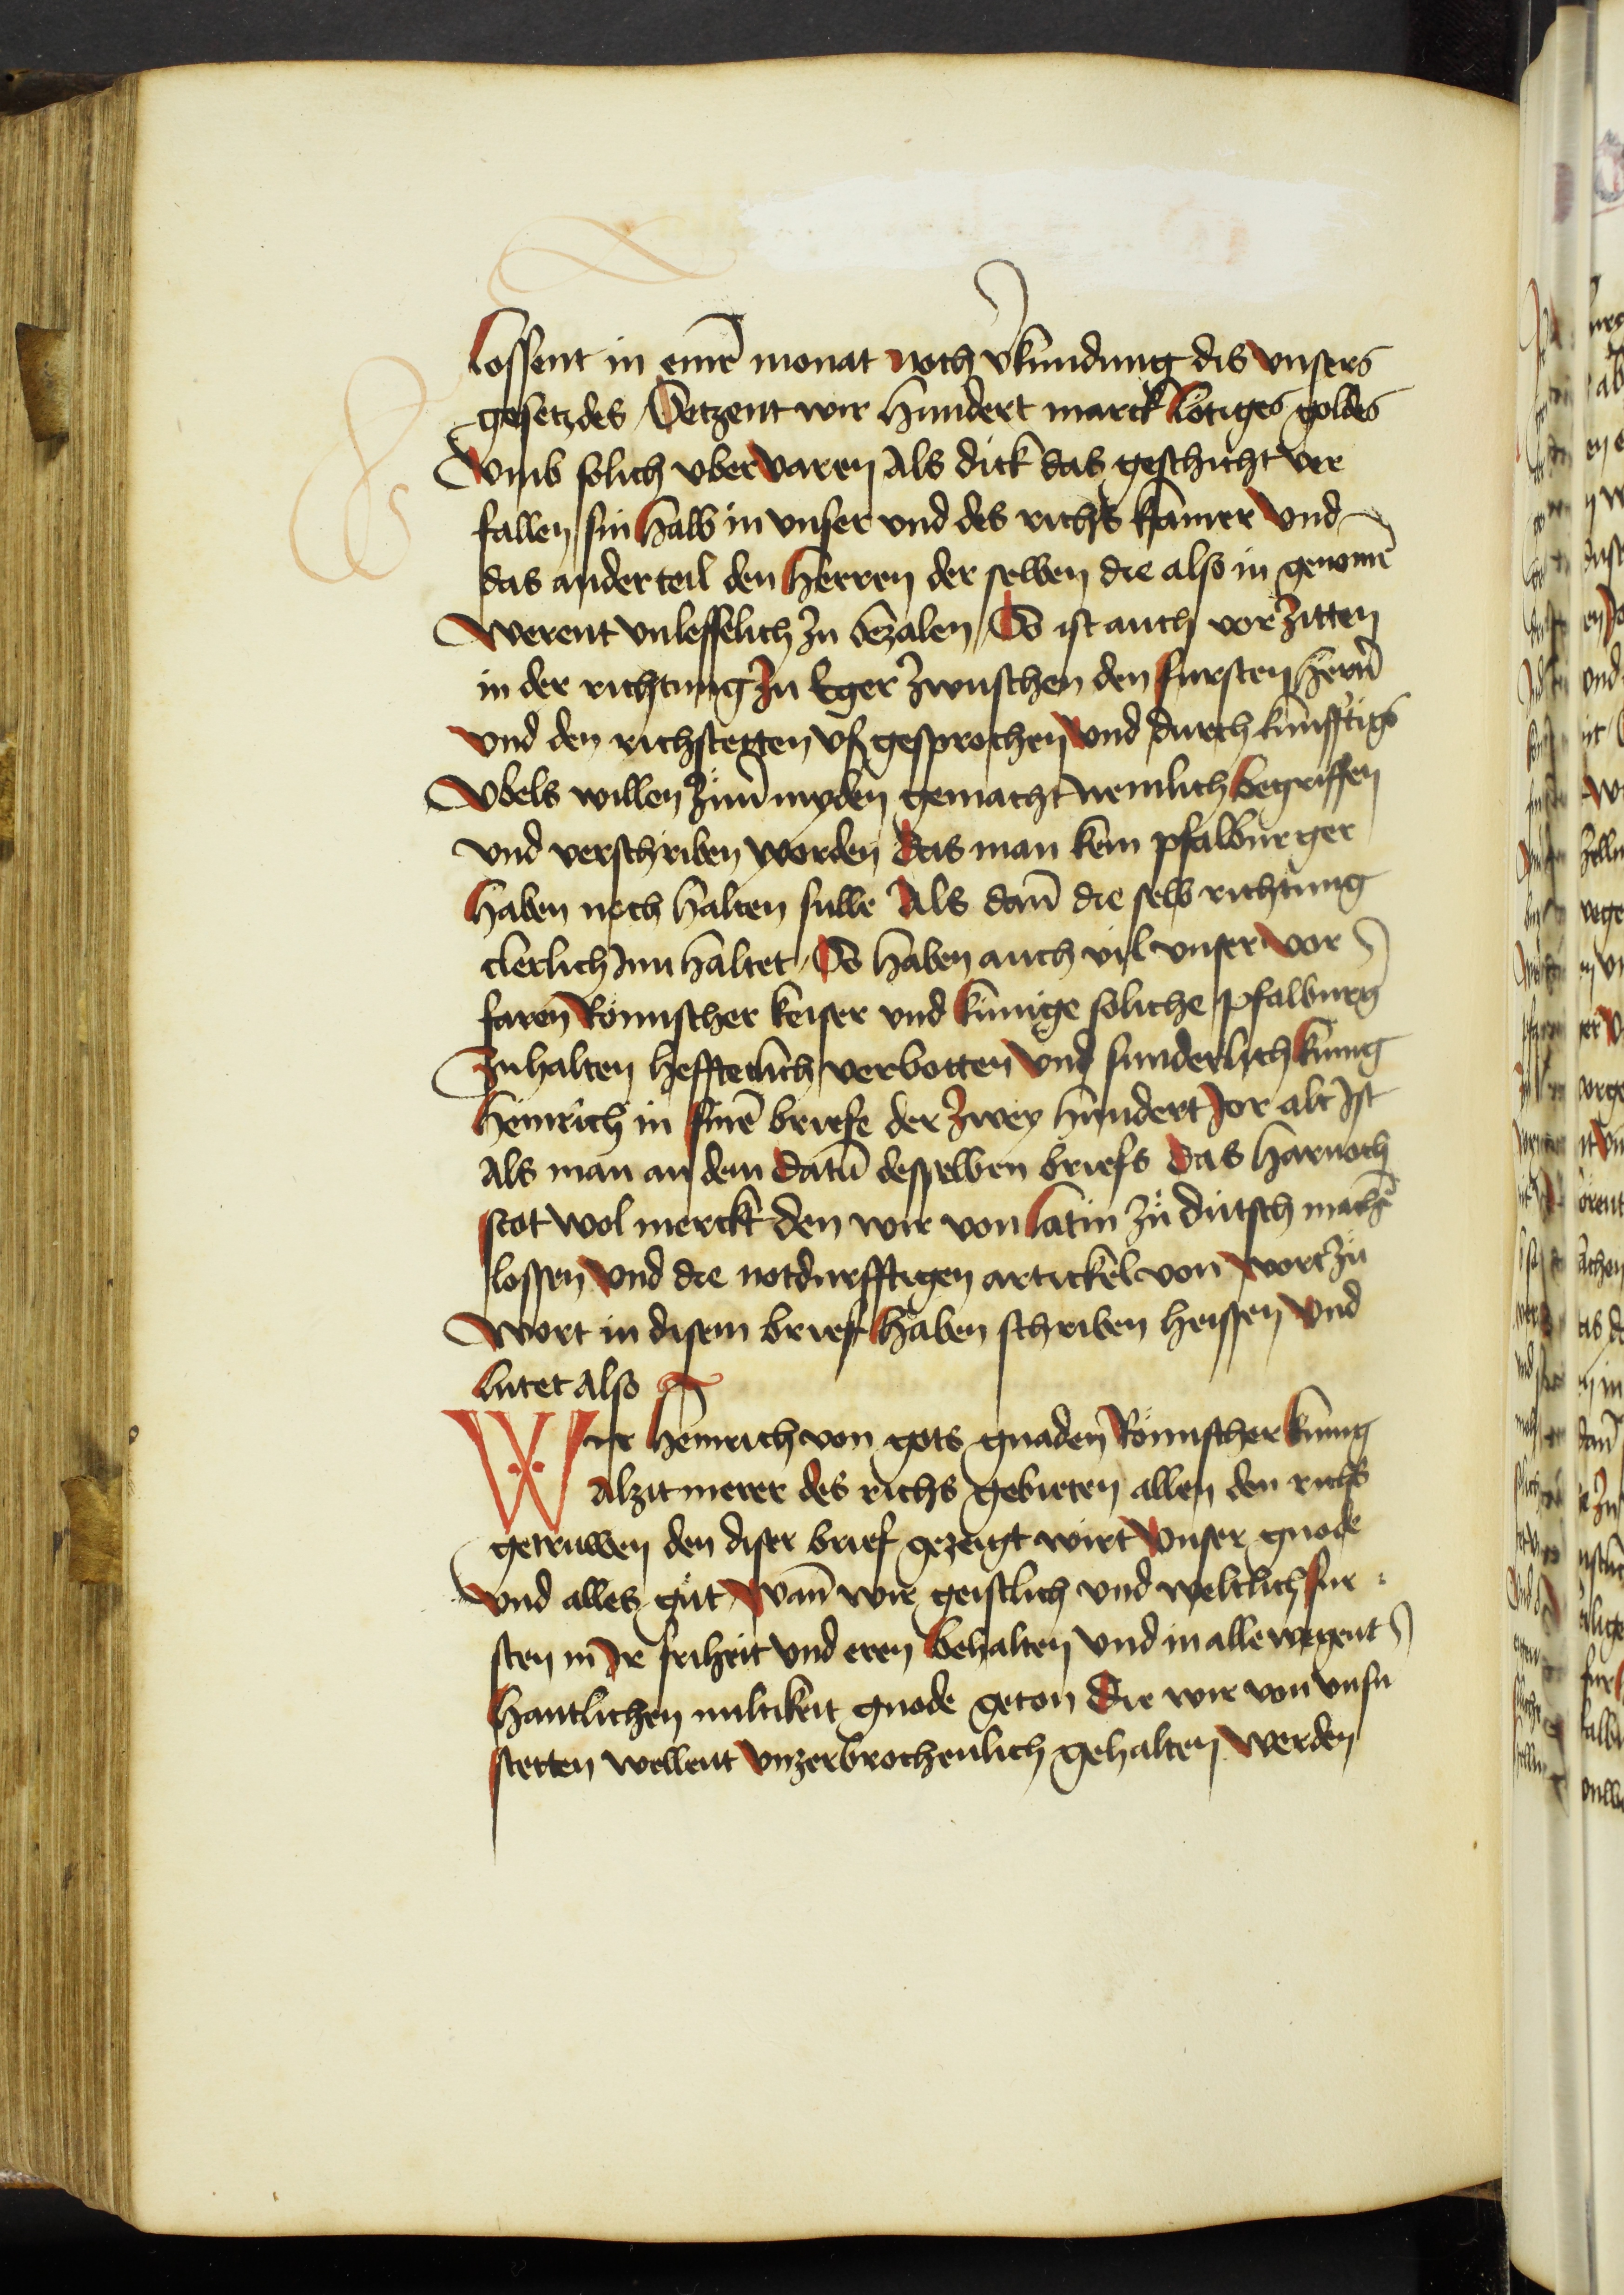 lossent in einē monat noch vkundung dis vnsers
gesetzdes Setzent wir hundert marck lötiges goldes
Vmb solich vbervaren Als dick das geschicht ver
fallen sin halb in vnser vnd des richs kamer vnd
das ander teil den herren der selben die also in genomē
werent vnlesselich zu bezalen Es ist auch vor zitten
in der richtung zu Eger zwuschen den fursten hern̄
vnd den richstetten vsgesprochen vnd durch kunfftigs
Vbels willen zuu̇ermyden gemacht nemlich begriffen
vnd verschriben worden das man kein pfalburger
haben noch halten sulle Als dan̄ die selb richtung
clerlich Inn haltet Es haben auch vil vnser vor
faren Römischer keiser vnd kunige soliche pfalburg
zuhalten hefftetlich verbotten vnd sunderlich kunig
heinrich in sinē briefe der zwey hundert Jor alt Ist
Als man an dem datū desselben briefs das harnoch
stot wol merckt den wir von latin zů dutsch machē
lossen vnd die notdurfftigen artickel von wort zů
wort in disem brief haben schriben heissen vnd
lutet also
Wir heinrich von gots gnaden Römischer kunig
Alzit merer des richs gebieten allen den richs
getruwen den diser brief gezeigt wirt vnser gnode
vnd alles gůt Wan̄ wir geistlich vnd weltlich fur
sten in Ir friheit vnd eren behalten vnd in allewegent
hantlichen miltikeit gnode geton Die wir von vnsn
stetten wellent vnzerbrochenlich gehalten werden